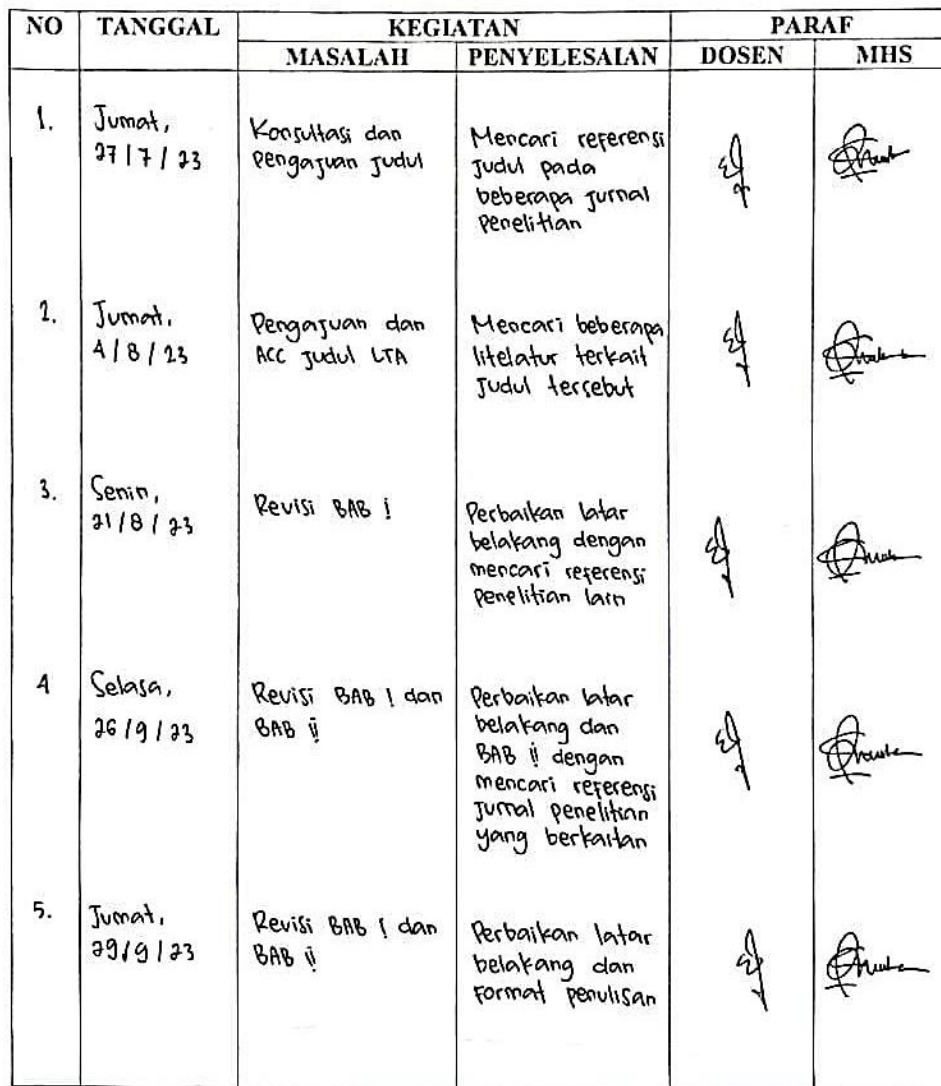 NO TANGGAL KEGIATAN PARAF
MASALAH PENYELESAIAN DOSEN MHS
1. Jumat,
27/7/23
Konsultasi dan
Pengajuan Judul
Mencari referensi
Judul pada
beberapa Jurnal
Penelitian
2. Jumat,
4/8/23
Pengajuan dan
ACC Judul LTA
Mencari beberapa
litelatur terkait
Judul tersebut
3. Senin,
21/8/23
Revisi BAB i
Perbaikan latar
belakang dengan
mencari referensi
Penelitian lain
4 Selasa,
26/9/23
Revisi BAB I dan
BAB ii
Perbaikan latar
belakang dan
BAB ii dengan
mencari referensi
Jurnal Penelitian
yang berkaitan
5. Jumat,
29/9/23
Revisi BAB I dan
BAB ii
Perbaikan latar
belakang dan
Format penulisan